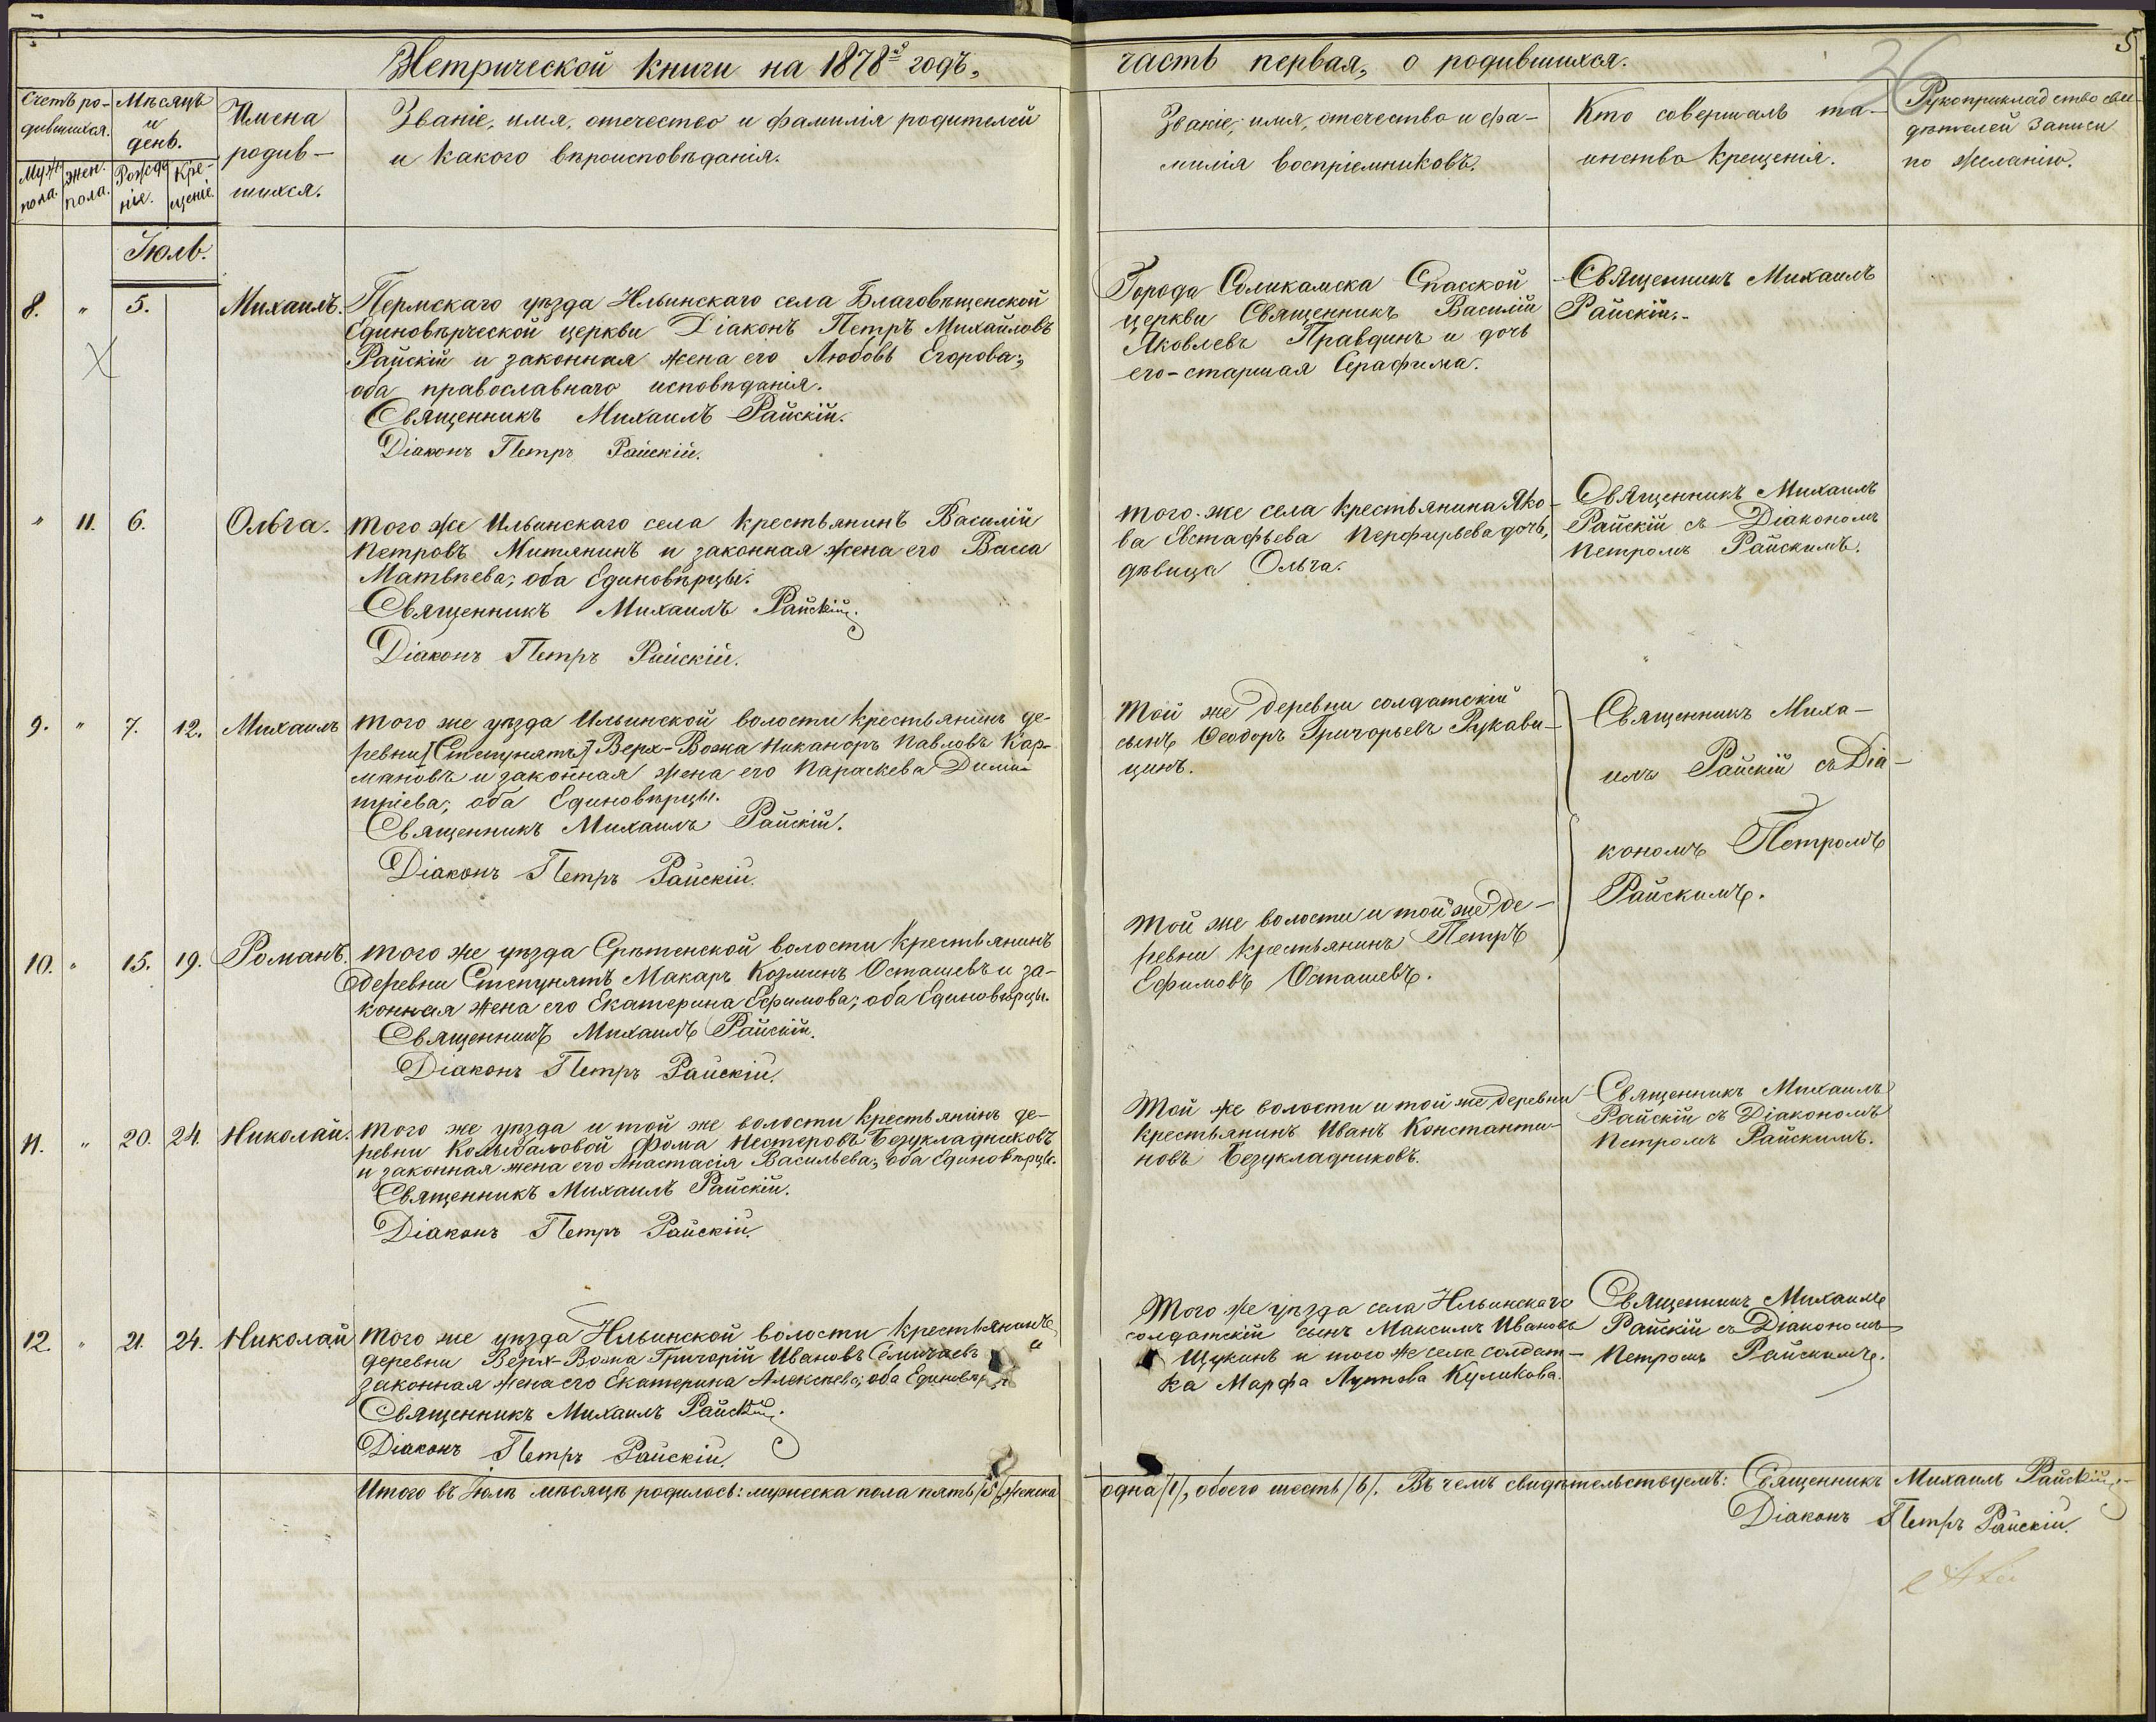 Метрической книги на 1878й годъ,
часть первая, о родившихся.
5
36
Счетъ ро-
дившихся.
Муж. пола.
Жен. пола.
Мѣсяцъ
и
день.
Рожде
ніе.
Кре-
щеніе.
Имена
родив-
шихся.
Званіе, имя, отечество и фамилія родителей
и какого вѣроисповѣданія.
Званіе, имя, отечество и фа-
милія воспріемниковъ.
Кто совершалъ та-
инство крещенія.
Рукоприкладство сви-
дѣтелей записи
по желанію.
Іюль.
8. " 5. Михаилъ.
Пермскаго уѣзда Ильинскаго села Благовѣщенской
Единовѣрческой церкви Діаконъ Петръ Михайловъ
Райскій и законная жена его Любовь Егорова;
оба православнаго исповѣданія.
Священникъ Михаилъ Райскій.
Діаконъ Петръ Райскій.
Города Соликамска Спасской
церкви Священникъ Василій
Яковлевъ Правдинъ и дочь
его - старшая Серафима.
Священникъ Михаилъ
Райскій.
" 11. 6. Ольга.
того же Ильинскаго села крестьянинъ Василій
Петровъ Митянинъ и законная жена его Васса
Матвѣева; оба Единовѣрцы.
Священникъ Михаилъ Райскій.
Діаконъ Петръ Райскій.
того-же села крестьянина Яко-
ва Евстафьева Перфирьева дочь,
дѣвица Ольга.
Священникъ Михаилъ
Райскій съ Діакономъ
Петромъ Райскимъ.
9. " 7. 12. Михаилъ
того же уѣзда Ильинской волости крестьянинъ де-
ревни [Степунятъ] Верх-Вожа Никаноръ Павловъ Кар-
мановъ и законная жена его Параскева Дими-
тріева; оба Единовѣрцы.
Священникъ Михаилъ Райскій.
Діаконъ Петръ Райскій.
той же деревни солдатскій
сынъ Ѳеодоръ Григорьевъ Рукави-
цинъ.
Священникъ Миха-
илъ Райскій съ Діа-
кономъ Петромъ
Райскимъ.
10. " 15. 19. Романъ.
того же уѣзда Срѣтенской волости крестьянинъ
деревни Степунятъ Макаръ Козминъ Осташевъ и за-
конная жена его Екатерина Ефимова; оба Единовѣрцы.
Священникъ Михаилъ Райскій.
Діаконъ Петръ Райскій.
той же волости и той же де-
ревни крестьянинъ Петръ
Ефимовъ Осташевъ.
11. " 20. 24. Николай.
того же уѣзда и той же волости крестьянинъ де-
ревни Колыбаловой Фома Нестеровъ Безукладниковъ
и законная жена его Анастасія Васильева; оба Единовѣрцы.
Священникъ Михаилъ Райскій.
Діаконъ Петръ Райскій.
Той же волости и той же деревни
крестьянинъ Иванъ Константи-
новъ Безукладниковъ.
Священникъ Михаилъ
Райскій съ Діакономъ
Петромъ Райскимъ.
12. " 21. 24. Николай
того же уѣзда Ильинской волости крестьянинъ
деревни Верх-Вожа Григорій Ивановъ и
законная жена его Екатерина Алексѣева; оба Единовѣр
Священникъ Михаилъ Райскій.
Діаконъ Петръ Райскій.
Того же уѣзда села Ильинскаго
солдатскій сынъ Максимъ Ивановъ
Щукинъ и того же села солдат-
ка Марфа Куликова.
Священникъ Михаилъ
Райскій съ Діакономъ
Петромъ Райскимъ.
Итого въ Іюлѣ мѣсяцѣ родилось: мужеска пола пять /5/, женска
одна /1/, обоего шесть /6/. Въ чемъ свидѣтельствуемъ: Священникъ Михаилъ Райскій
Діаконъ Петръ Райскій.